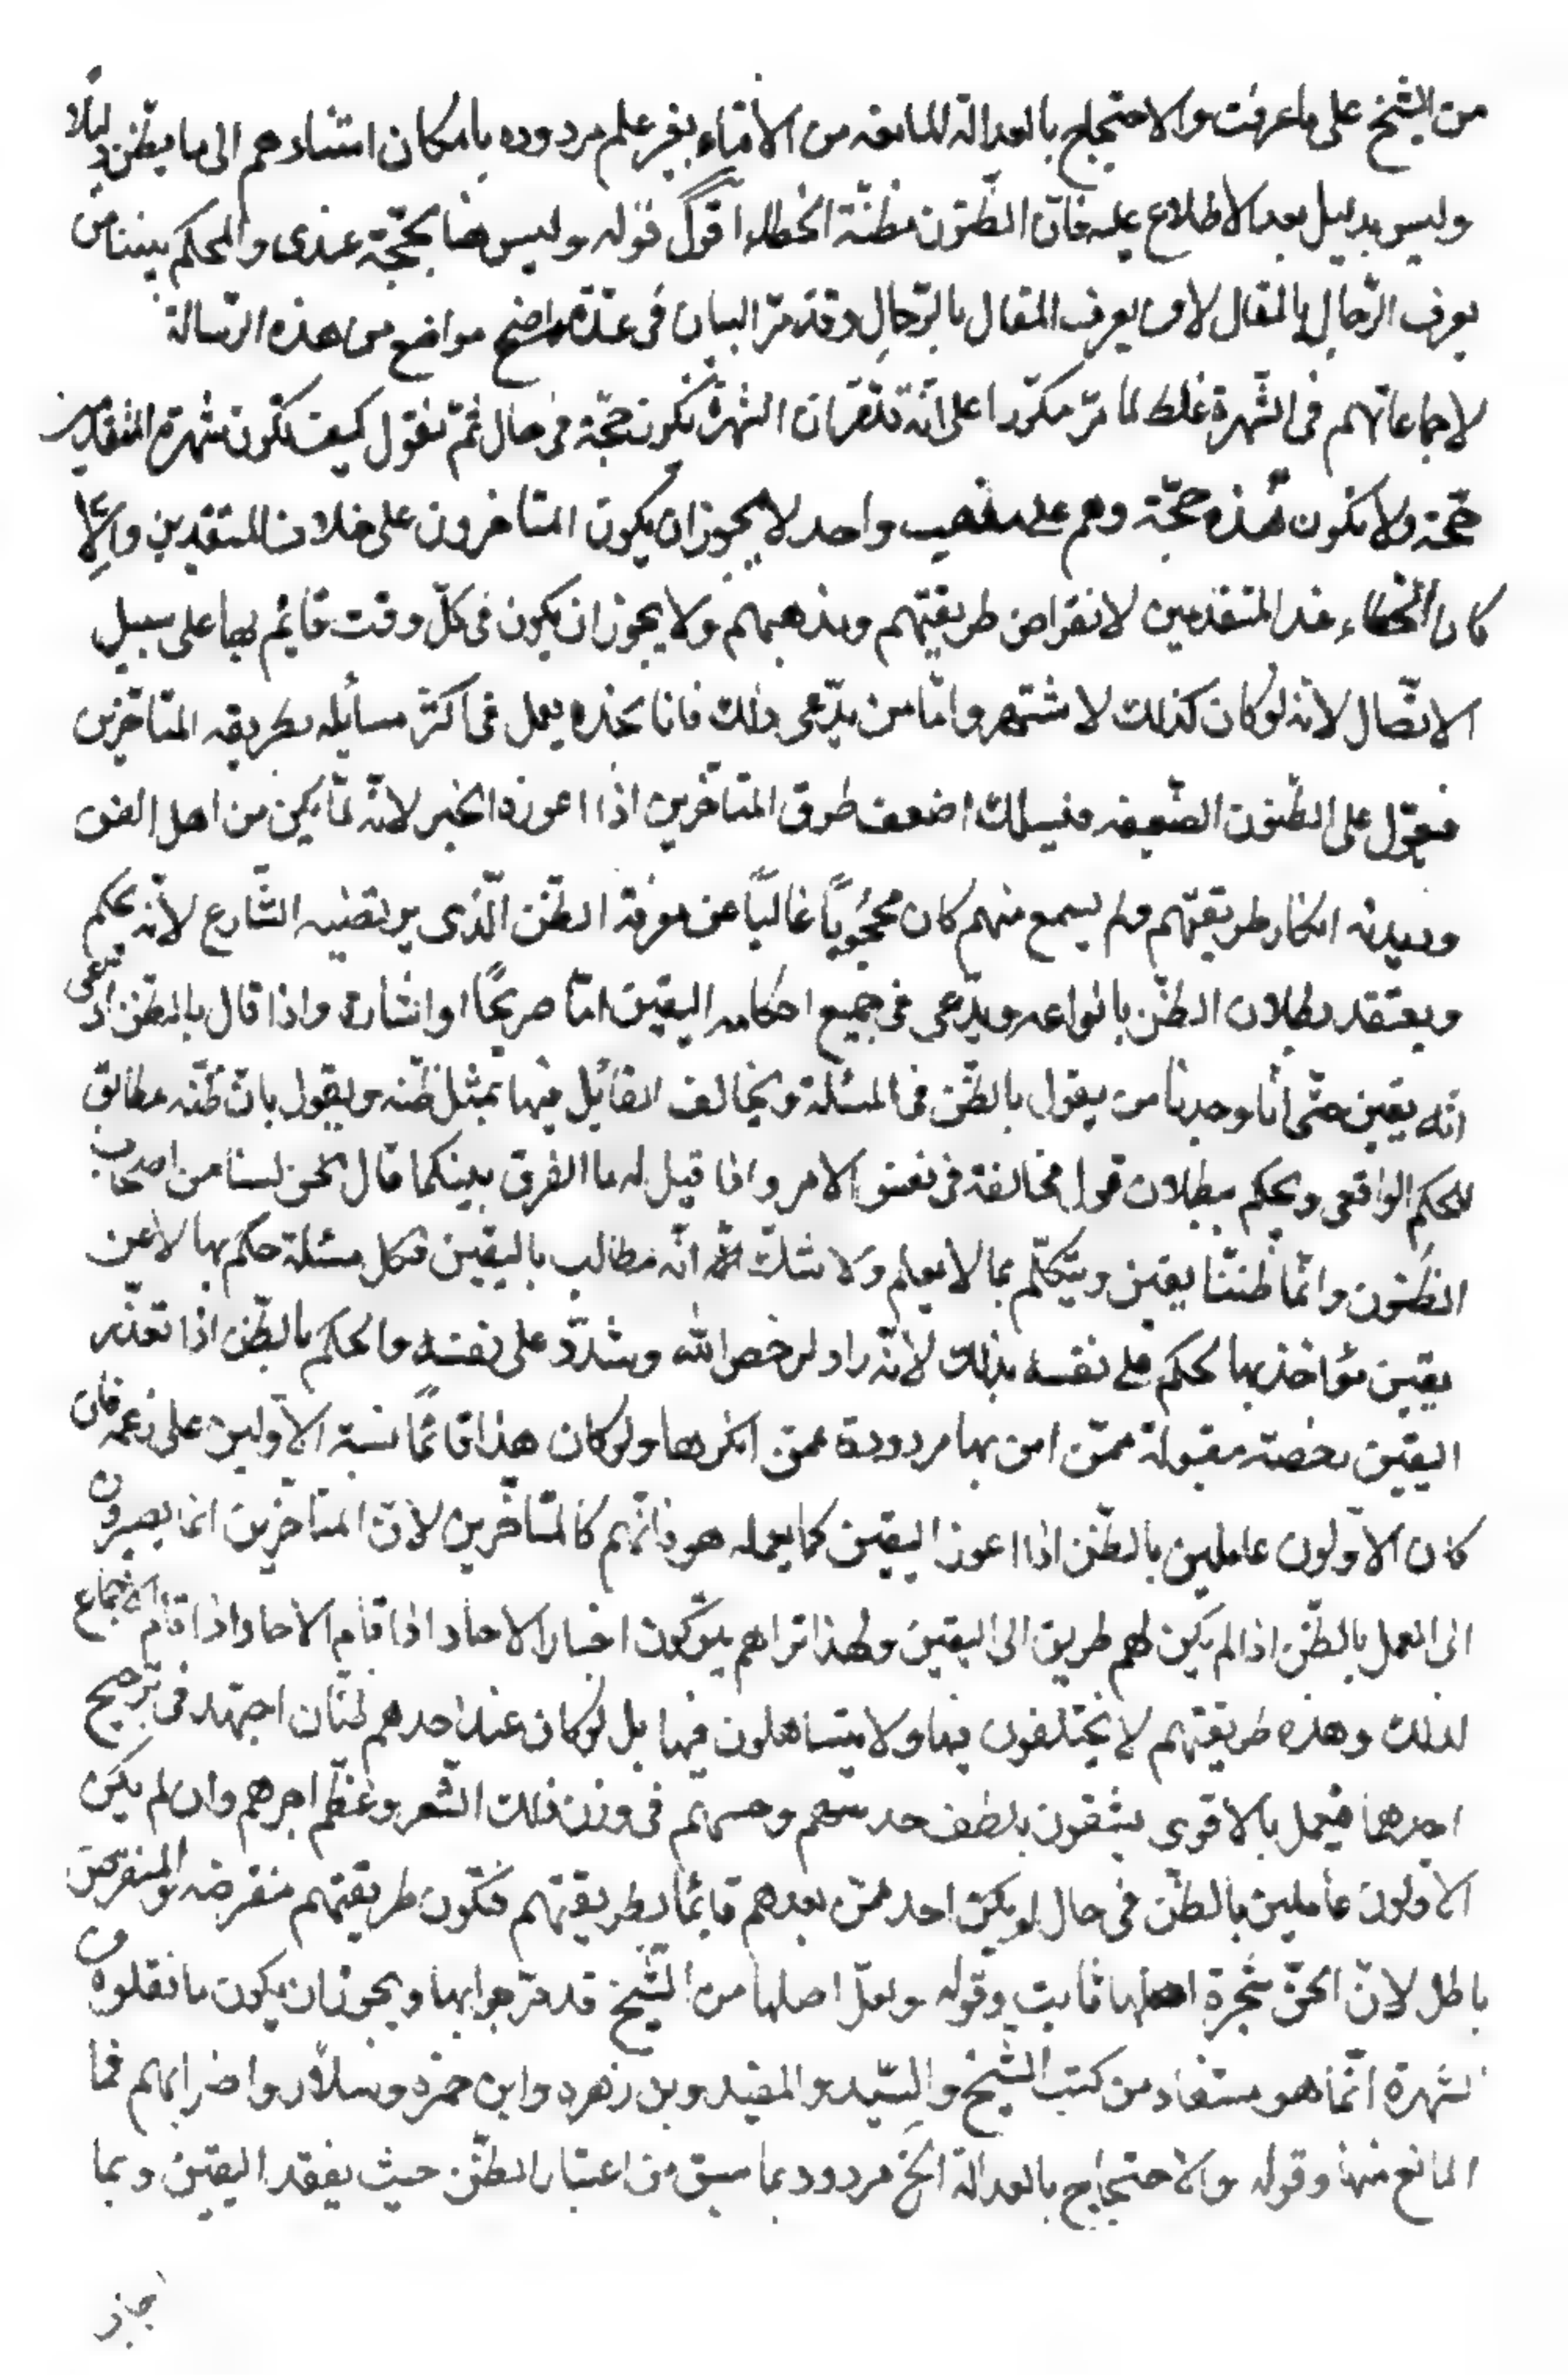 من الشيخ على ما عرفت والاحتجاج بالعدالة المانعه من الأفتاء بغير علم مردوده بامكان استنادهم الى ما يظن دليلا
وليس بدليل بعد الاطلاع عليه فان الظنون مظنّة الخطاء اقول قوله وليس هنا بحجّة عندى والمحكم بيننا من
يعرف الرّجال بالمقال لا من يعرف المقال بالرّجالِ وقد مرّ البيان فى عدّة مواضع من هذه الرّسالة
لاجماعاتهم فى الشّهرة غلط لما مرّ مكرّرا على انّه تقرّر ان الشهرة تكون حجّة فى حال ثمّ نقول كيف تكون شهرة المتقدمين
حجّة ولا تكون هذه حجّة وهم على مذهب واحد لا يجوز ان يكون المتاخرون على خلاف المتقدمين والّا
كان الخطاء عند المتقدمين لانقراض طريقتهم ومذهبهم ولا يجوز ان يكون فى كلّ وقت قائم بها على سبيل
الاتّصال لانه لو كان كذلك لاشتهر وامّا من يدّعى ذلك فانا نجده يعمل فى اكثر مسائله بطريقه المتاخّرين
فيعوّل على الظّنون الضّعيفه فيسلك اضعف طرق المتاخّرين اذا اعوزه الخبر لانّه لمّا يكن من اهل الفن
وديدنه انكار طريقتهم ولم يسمع منهم كان محجُوباً غالباً عن معرفة الظّن الّذى يرتضيه الشّارع لانّه يحكم
ويعتقد بطلان الظّن بانواعه ويدّعى فى جميع احكامه اليقين امّا صريحًا او اشارة واذا قال بالظّن ادّعى
انّه يقين حتّى أنّا وجدنا من يقول بالظّن فى المسئلة ويخالف القائل فيها بمثل ظنّه ويقول بانّ ظنّه مطابق
للحكم الواقعى ويحكم ببطلان قول مخالفة فى نفس الامر واذا قيل له ما الفرق بينكما قال نحن لسنا من اصحاب
الظنون وانّما ظنّنا يقين ويتكلّم بما لا يعلم ولا شكّ انّه مطالب باليقين فكل مسئلة حكم بها لا عن
يقين مؤاخذ بها لحكم على نفسه بذلك لانّه راد لرخص الله وشدّد على نفسه والحكم بالظّن اذا تعذّر
اليقين رخصته مقبولة ممّن امن بها مردودة عمّن انكرها ولو كان هذا قائماً نسبة الأولين على زعمه فان
كان الأولون عاملين بالظّن اذا اعوز اليقين كما يعمله هو فانّهم كالمتاخّرين لانّ المتاخّرين انّما يصيرون
الى العمل بالظّن اذا لم يكن لهم طريق الى اليقين ولهذا تراهم يتركون اخبار الاحاد اذا قام الاحاد واذا قام الاجماع
لذلك وهذه طريقتهم لا يختلفون فيها ولا يتساهلون فيها بل لو كان عند احدهم ظنّان اجتهد فى ترجيح
احدهما فيعمل بالاقوى يثقون بلطف حدسهم وحسهم فى وزن ذلك الشّعر وعظم اجرهم وان لم يكن
الأولون عاملين بالظّن فى حال لو يكن احد ممّن بعدهم قائماً بطريقتهم فتكون طريقتهم منقرضه والمنقرض
باطل لانّ الحقّ شجرة اصلها ثابت وقوله ولعلّ اصلها من الشّيخ قد مرّ جوابها ويجوز ان يكون ما نقلوه من
الشهرة انّما هو مستفاد من كتب الشّيخ والسّيد والمفيد وبن زهره وابن حمزه وسلّار واضرابهم فما
المانع منها وقوله والاحتجاج بالعدالة الخ مردود بما سبق من اعتبار الظّن حيث يفقد اليقين وبما